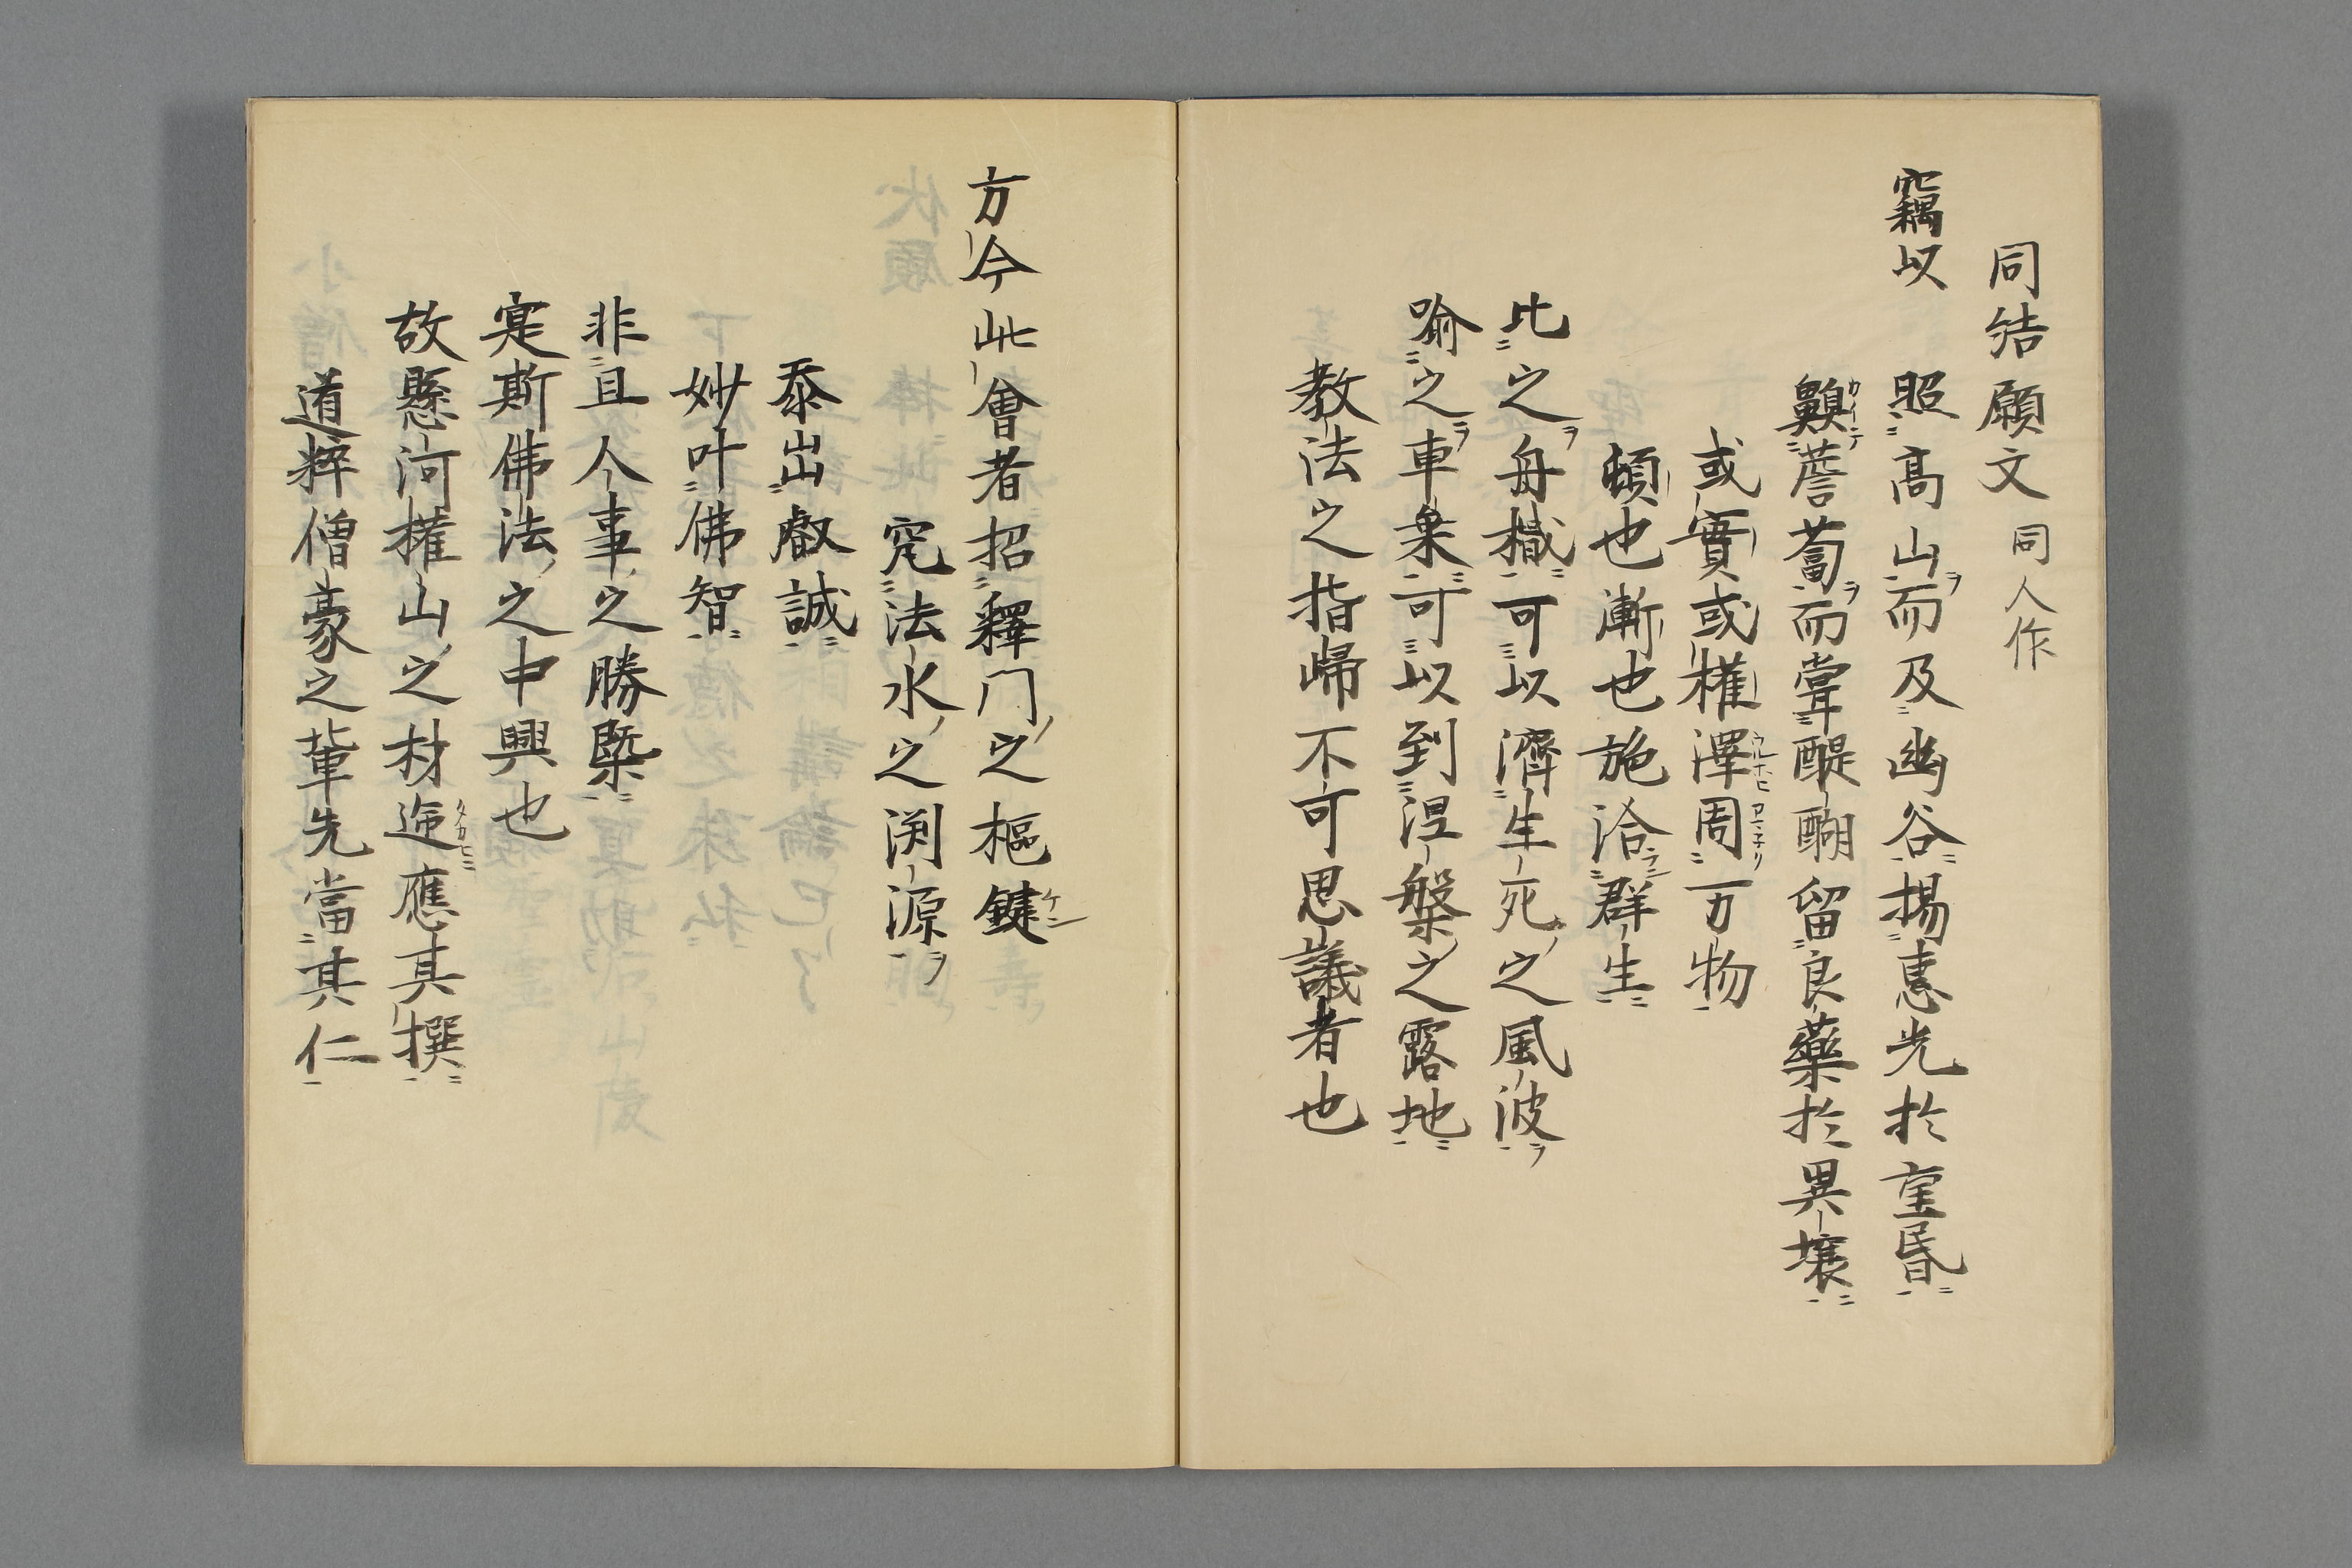 同結願文 同人作
竊以 照高山ヲ而及幽谷揚惠光於重昏
齅薝蔔ヲ而甞醍醐留良藥於異壤
或實或權澤周万物
頓也漸也施洽群生
比之ヲ舟檝可以濟生死之風波ヲ
喩之ヲ車乗可以到涅槃之露地
教法之指歸不可思議者也
方今此會者招釋门之樞鍵
究法水之渕源ヲ
忝出叡誠
妙叶佛智
非且人事之勝槩
寔斯佛法之中興也
故懸河權山之材迩應其撰
道粹僧豪之輩先當其仁